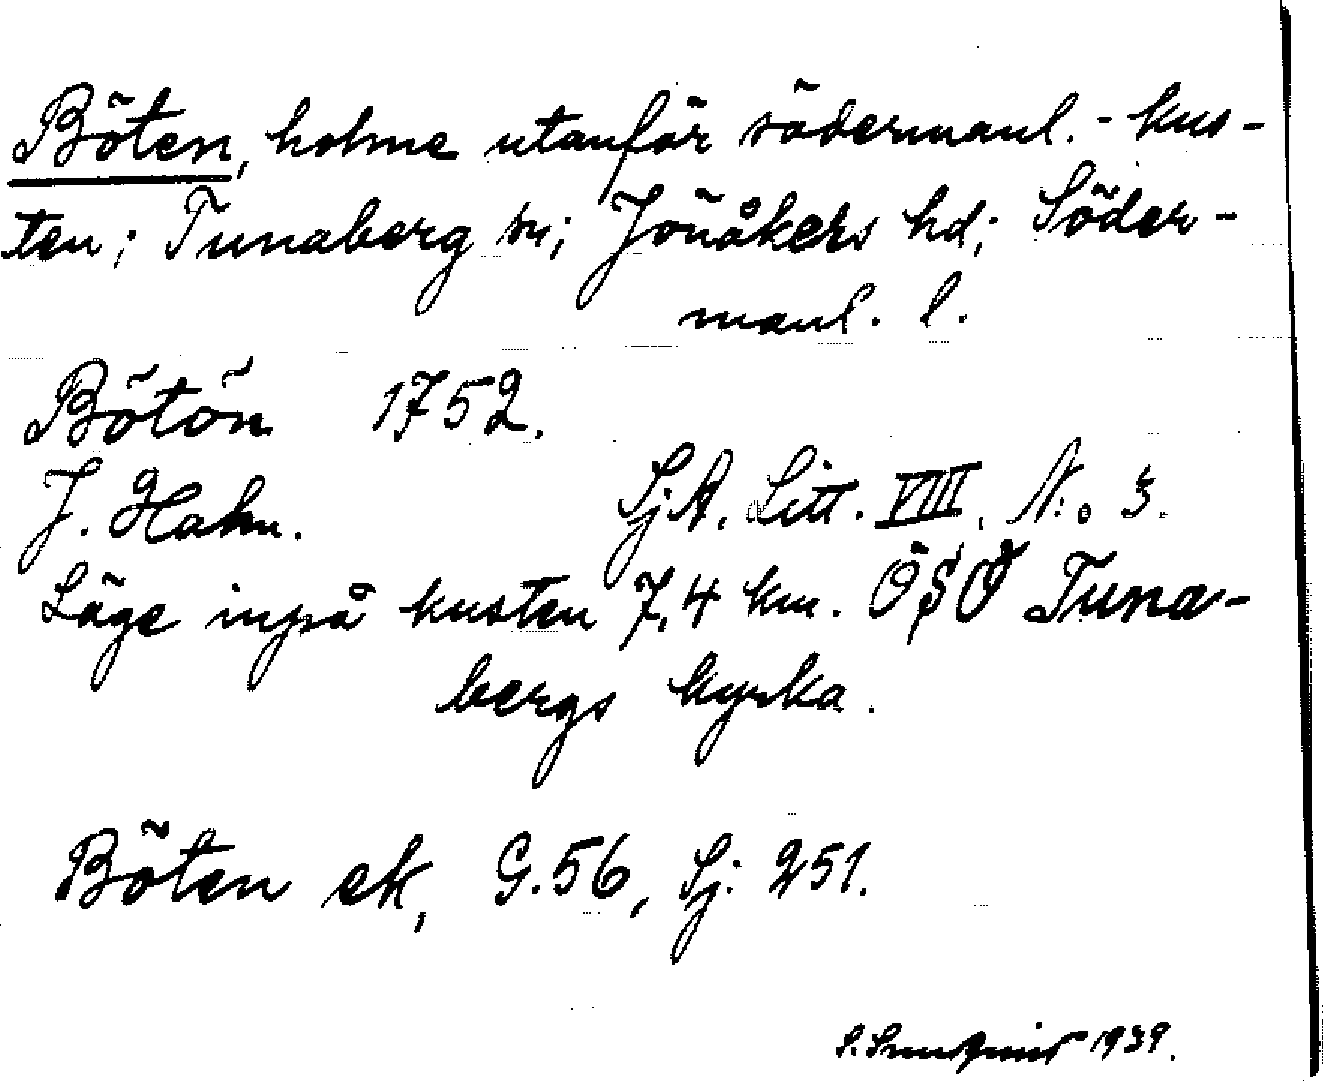 Böten, holme utanför södermanl.- kus-
ten; Tunaberg sn; Jönåkers hd; Söder-
manl. l.
Bötön 1752.
J. Hahn. Sj.A. Litt. VIII, N:o 3.
Läge inpå kusten 7,4 km. ÖSÖ Tuna-
bergs kyrka.
Böten ek, G.56, Sj: 251.
1939.